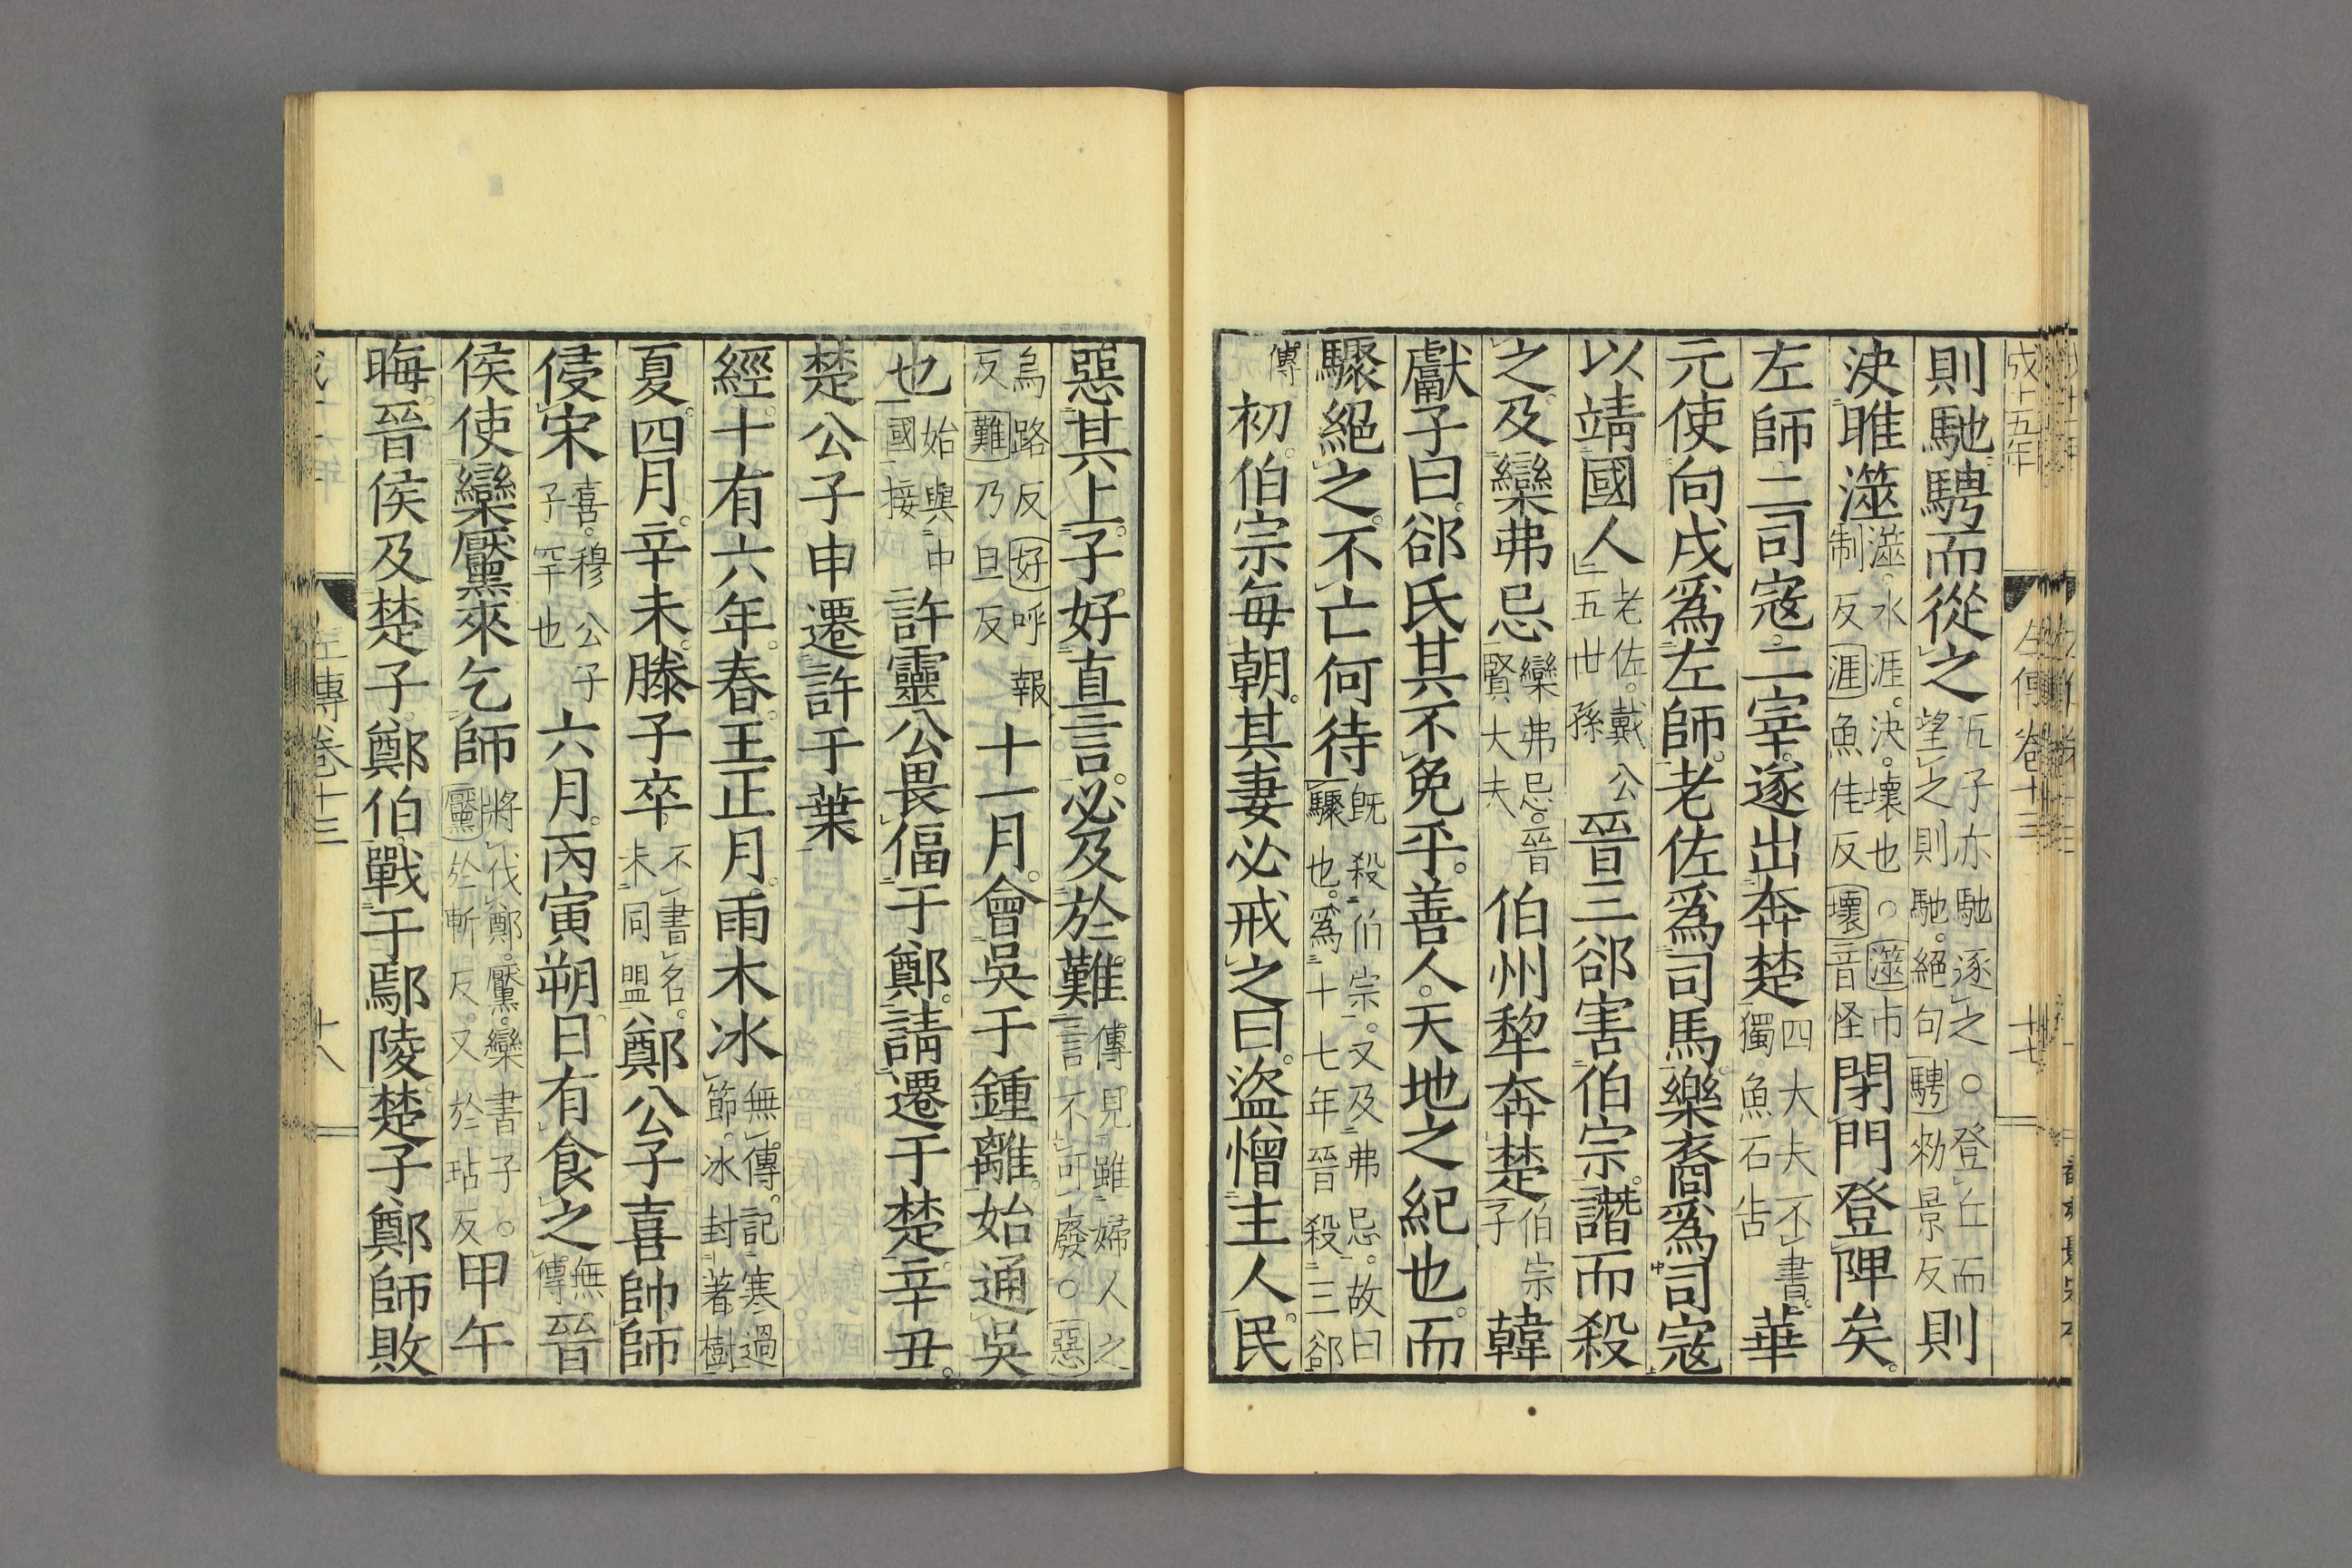 成十五年　左傳卷十三　十七
則馳騁而從之元子亦馳逐之○登丘而望之則馳絕句騁勑景反則
決睢澨澨水涯決壞也○澨市制反涯魚佳反壞音怪閉門登陴矣
左師二司寇二宰遂出奔楚四大夫不書獨魚石告華
元使向戌爲左師老佐爲司馬樂裔爲司寇
以靖國人老佐戴公五世孫晉三郤害伯宗譖而殺
之及欒弗忌欒弗忌晉賢大夫伯州犂奔楚伯宗子韓
獻子曰郤氏其不免乎善人天地之紀也而
驟絕之不亡何待既殺伯宗又及弗忌故曰驟也爲十七年晉殺三郤
傳初伯宗每朝其妻必戒之曰盜憎主人民
惡其上子好直言必及於難傳見雖婦人之言不可廢○惡
烏路反好呼報反難乃旦反十一月會吳于鍾離始通吳
也始與中國接許靈公畏偪于鄭請遷于楚辛丑
楚公子申遷許于葉
經十有六年春王正月雨木冰無傳記寒過節冰封著樹
夏四月辛未滕子卒不書名未同盟鄭公子喜帥師
侵宋喜穆公子子罕也六月丙寅朔日有食之無傳晉
侯使欒黶來乞師將伐鄭黶欒書子○黶於斬反又於玷反甲午
晦晉侯及楚子鄭伯戰于鄢陵楚子鄭師敗
左傳卷十三　十八